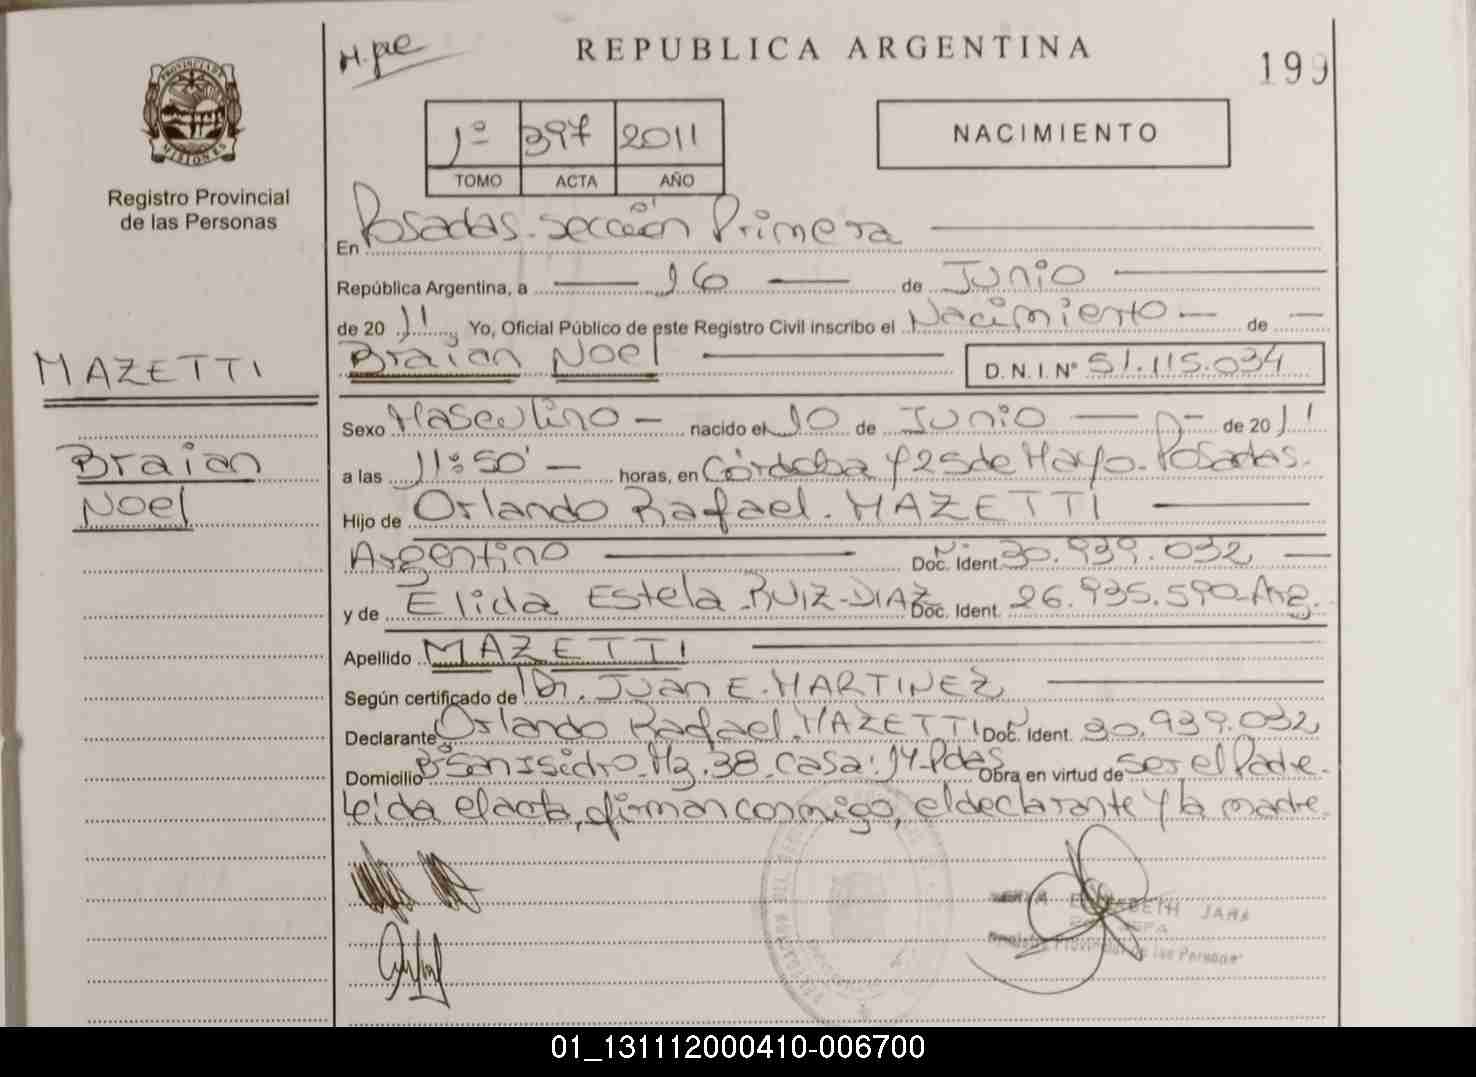 H. pje
REPUBLICA ARGENTINA
199
PROVINCIA DE MISIONES
Registro Provincial
de las Personas
1º 397 2011
TOMO ACTA AÑO
NACIMIENTO
En Posadas. sección Primera
República Argentina, a 16 de Junio
de 20 11, Yo, Oficial Público de este Registro Civil inscribo el Nacimiento de
MAZETTI
Braian Noel D. N. I. Nº 51.115.034
Sexo Masculino nacido el 10 de Junio de 20 11
Braian
a las 11:50' horas, en Córdoba y 25 de Mayo. Posadas.
Noel
Hijo de Orlando Rafael. MAZETTI
Argentino Doc. Ident. 30.939.032
y de Elida Estela RUIZ-DIAZ Doc. Ident. 26.935.590 Arg.
Apellido MAZETTI
Según certificado de Dr. Juan E. MARTINEZ
Declarante Orlando Rafael. MAZETTI Doc. Ident. 30.939.032
Domicilio Bº San Isidro. Mz. 38. Casa: 14. Pdas Obra en virtud de ser el Padre.
Leida el acta, firman conmigo, el declarante y la madre.
ELIZABETH JARA
Registro Provincial de las Personas
01_131112000410-006700